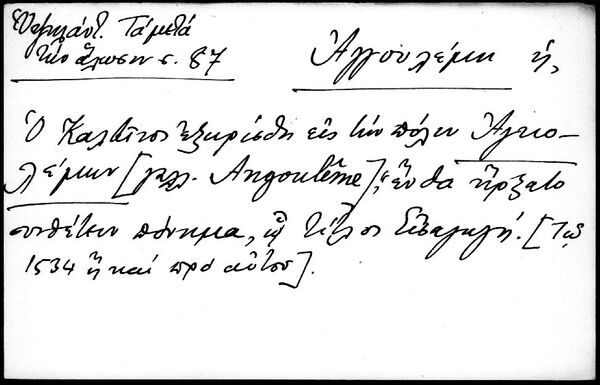 Ὑψηλάντ. Τὰ μετὰ
τὴν ἅλωσιν σ. 87
Ἀγγουλέμη ἡ,
Ὁ Καλβῖνος ἐξωρίσθη εἰς τὴν πόλιν Ἀγκιο-
λέμην [γαλλ. Angoulême], ἔνθα ἤρξατο
συνθέτειν πόνημα, ᾧ τίτλος Εἰσαγωγή. [Τῷ
1534 ἢ καὶ πρὸ αὐτοῦ].